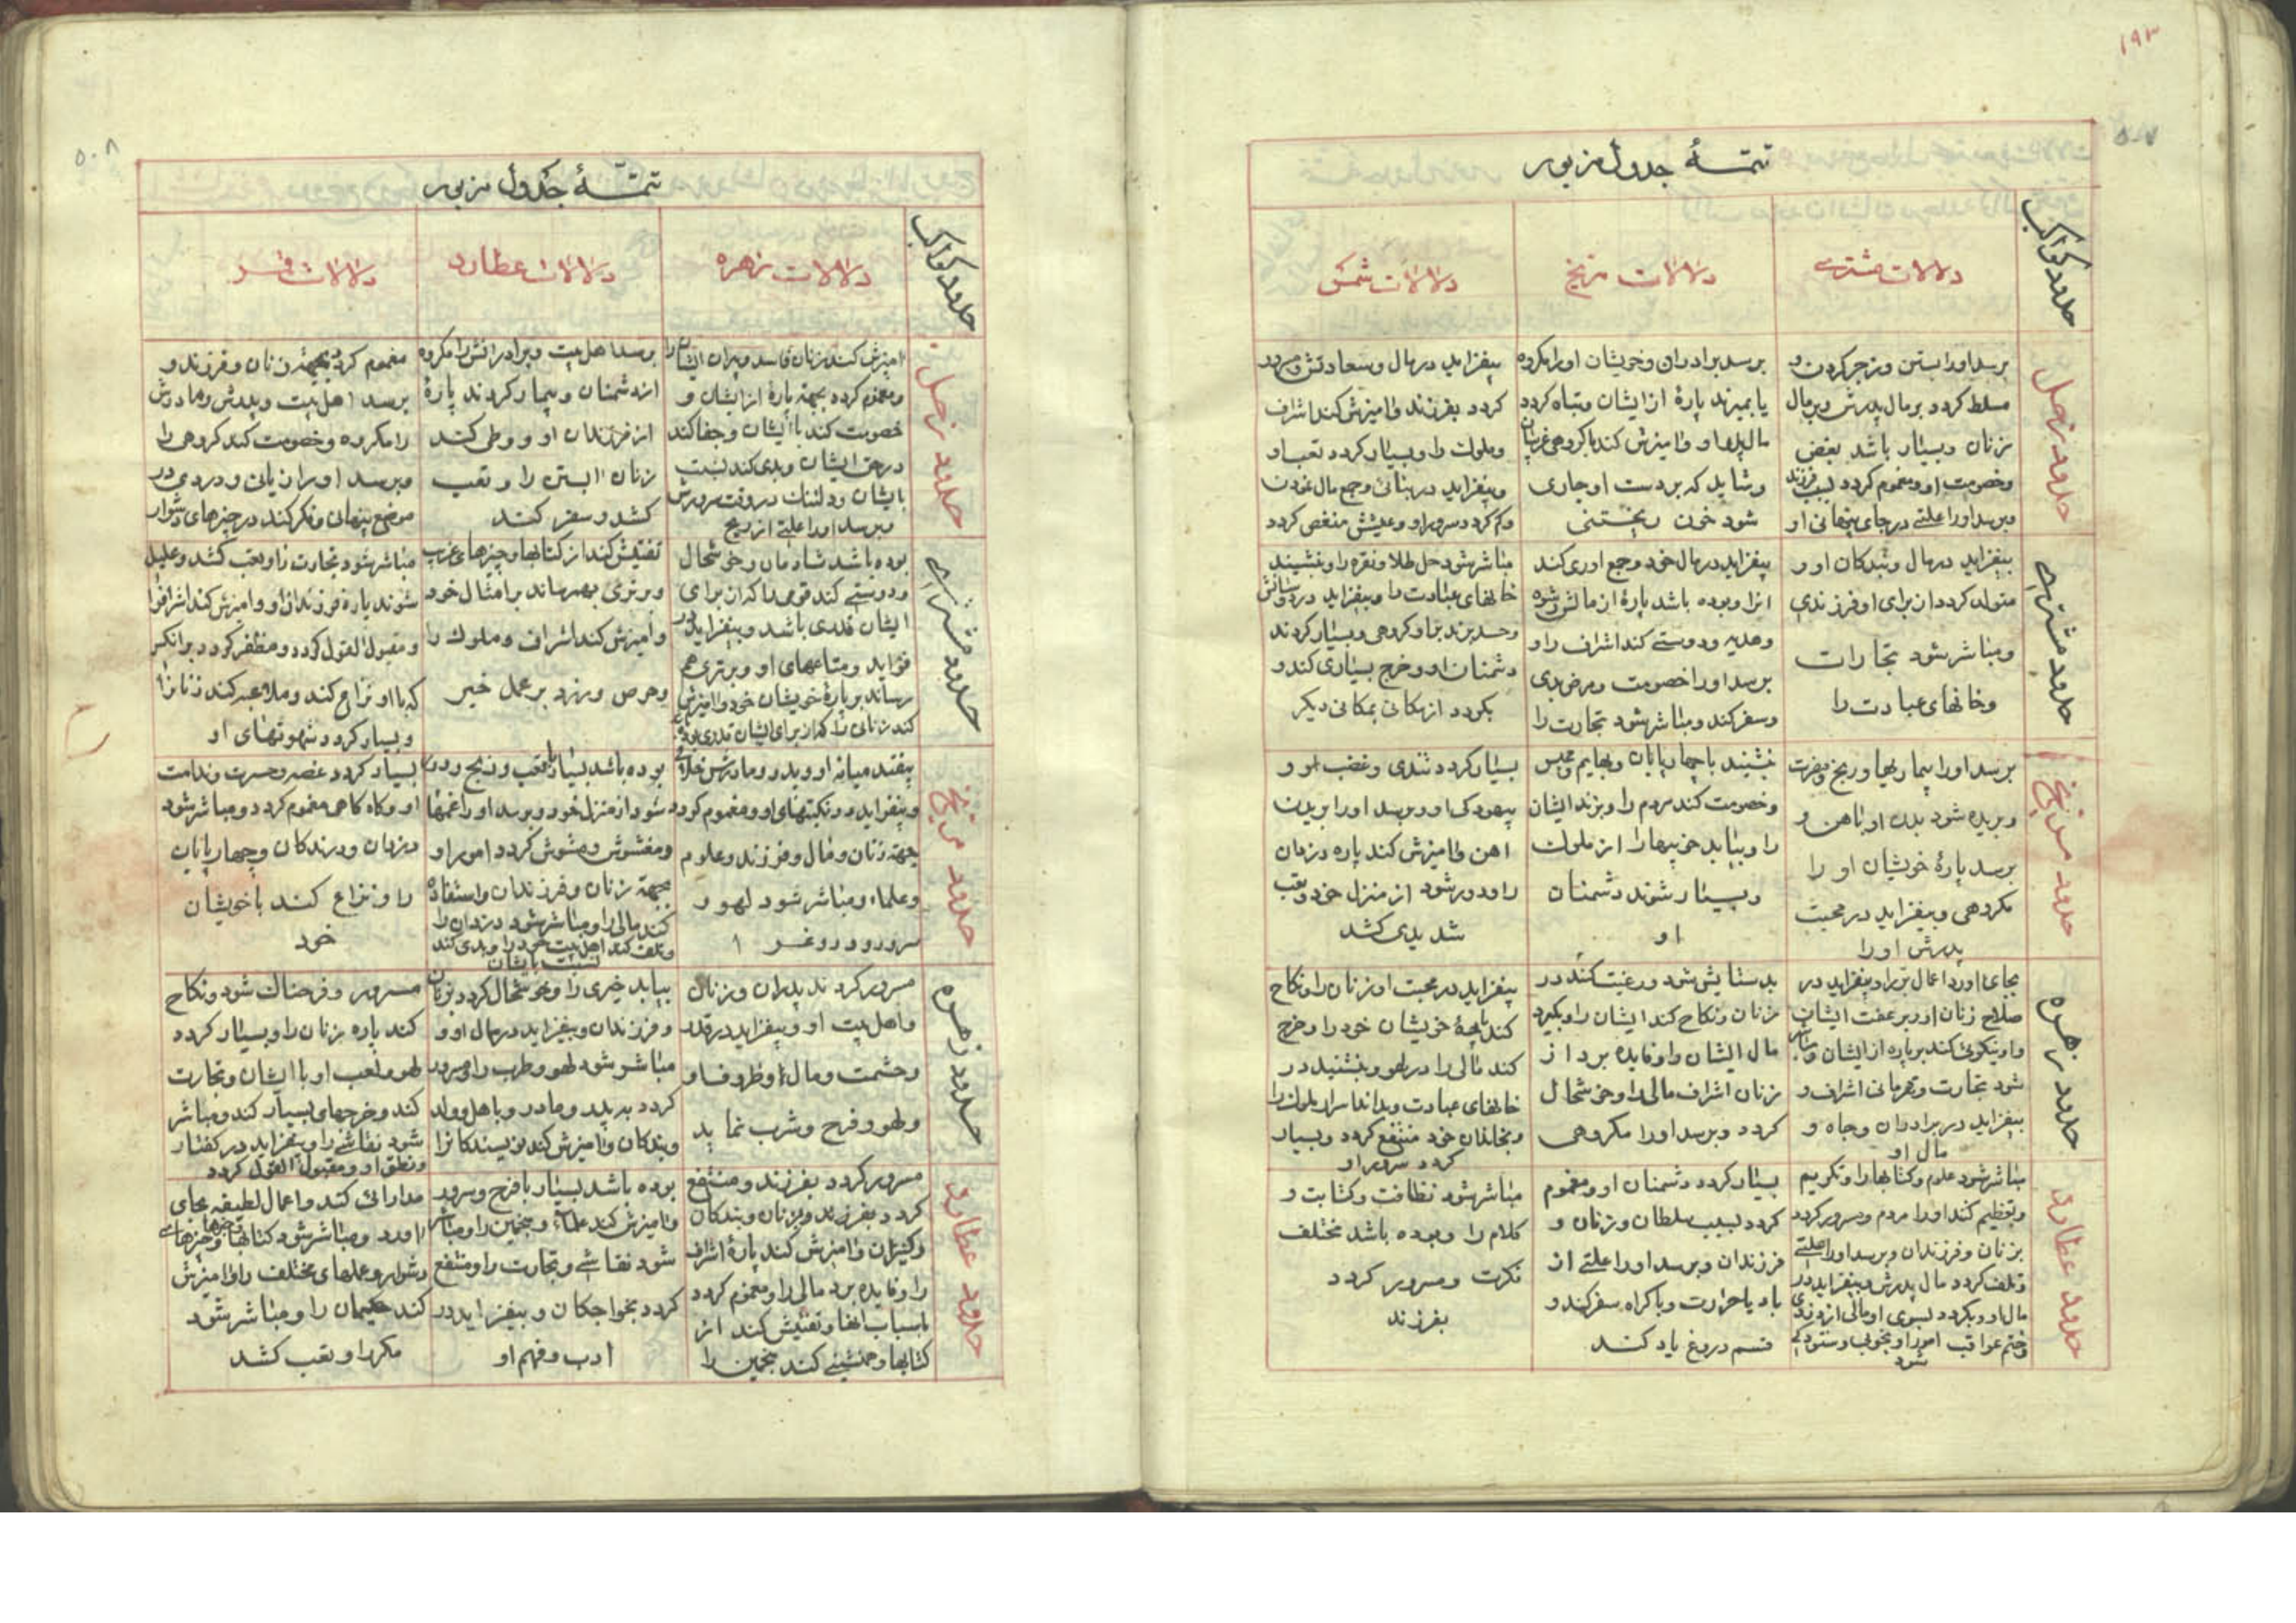 ۱۹۳
۵۰۷
تتمّۀ جدول مزبور
حدود کواکب
دلالات مشتری
دلالات مریخ
دلالات شمس
حدود زحل
برسد او را بستن و زجر کردن و
مسلط کردد بر مال پدرش و بر مال
زنان و بسیار باشد بغض
وخصومت او و مغموم کردد بسبب فرزند
وبرسد او را علتی در جای پنهانی او
برسد برادران وخویشان او را مکروه
یا بمیرند پارۀ از ایشان و تباه کردد
مالهای او وامیزش کند با کروهی غریبان
وشاید که بر دست او جاری
شود خون ریختنی
بیفزاید در مال و سعادتش و مسرور
کردد بفرزند وامیزش کند اشراف
وملوک را و بسیار کردد تعب او
وبیفزاید در بنائی وجمع مال نمودن
وکم کردد سرور او و عیشش منغص کردد
حدود مشتری
بیفزاید در مال و بندکان او و
متولد کردد از برای او فرزندی
ومباشر شود تجارات
وخانهای عبادت را
بیفزاید در مال خود وجمع اوری کند
انرا و بوده باشد پارۀ از مالش رشوه
وهدیه ودوستی کند اشراف را و
برسد او را خصومت ومرض بدی
وسفر کند ومباشر شود تجارت را
مباشر شود حل طلا ونقره را و بنشیند
خانهای عبادت را و بیفزاید در دوستانش
وحسد برند بر او کروهی و بسیار کردند
دشمنان او و خرج بسیاری کند و
بکردد از مکانی بمکانی دیکر
حدود مریخ
برسد او را بیماریها و رنج و مضرت
و بریده شود بدن او باهن و
برسد پارۀ خویشان او را
مکروهی و بیفزاید در محبت
پدرش او را
بنشیند با چهارپایان وبهایم و محبس
وخصومت کند مردم را و بزند ایشان
را و بیابد خوبیها را از ملوک
و بسیار شوند دشمنان
او
بسیار کردد تندی وغضب او و
بیهودکی او و برسد او را بریدن
اهن وامیزش کند پاره دزدان
را و دور شود از منزل خود وتعب
شدیدی کشد
حدود زهره
بجای اورد اعمال بر را و بیفزاید در
صلاح زنان او و بر عفت ایشان
واو نیکوئی کند بر پاره از ایشان ومباشر
شود تجارت وقهرمانی اشراف و
بیفزاید در برادران وجاه و
مال او
بد ستایش شود ورغبت کند در
زنان ونکاح کند ایشان را و بکیرد
مال ایشان را و فایده برد از
زنان اشراف مالی را و خوشحال
کردد وبرسد او را مکروهی
بیفزاید در محبت او زنان را ونکاح
کند پارۀ خویشان خود را و خرج
کند مالی را در لهو و بنشیند در
خانهای عبادت و بداند اسرار ملوک را
وبخاندان خود منتفع کردد و بسیار
کردد سرور او
حدود عطارد
مباشر شود علوم وکتابها را و تکریم
وتعظیم کند او را مردم ومسرور کردد
بزنان وفرزندان وبرسد او را علتی
وتلف کردد مال پدرش و بیفزاید در
مال او و بکردد بسوی او مالی از دزدی
وختم عواقب امور او بخوبی وستودکی
شود
بسیار کردد دشمنان او و مغموم
کردد بسبب سلطان وزنان و
فرزندان وبرسد او را علتی از
باد یا حرارت وباکراه سفر کند و
قسم دروغ یاد کند
مباشر شود نظافت وکتابت و
کلام را و بوده باشد مختلف
فکرت ومسرور کردد
بفرزند
۵۰۸
تتمّۀ جدول مزبور
حدود کواکب
دلالات زهره
دلالات عطارد
دلالات قمر
حدود زحل
امیزش کند زنان فاسد و پیران ایشان را
ومغموم کردد بجهة پارۀ از ایشان و
خصومت کند با ایشان وجفا کند
در حق ایشان وبدی کند نسبت
بایشان ودلتنک در وقت سرورش
وبرسد او را علتی از ریح
برسد اهل بیت وبرادرانش را مکروه
از دشمنان وبیمار کردند پارۀ
از فرزندان او و وطی کند
زنان ابستن را و تعب
کشد وسفر کند
مغموم کردد بجهة زنان وفرزند و
برسد اهل بیت وپدرش ومادرش
را مکروه وخصومت کند کروهی را
وبرسد او را زیانی ودردی در
موضع پنهان وفکر کند در چیزهای دشوار
حدود مشتری
بوده باشد شادمان وخوشحال
ودوستی کند قومی را که از برای
ایشان قدری باشد و بیفزاید در
فواید ومتاعهای او وبرتری بهم
رساند بر پارۀ خویشان خود وامیزش
کند زنانی را که از برای ایشان قدری بوده باشد
تفتیش کند از کتابها وچیزهای غریب
وبرتری بهمرساند بر امثال خود
وامیزش کند اشراف وملوک را
وحرص ورزد بر عمل خیر
مباشر شود تجارت را و تعب کشد وعلیل
شوند پارۀ فرزندان او وامیزش کند اشراف را
ومقبول القول کردد ومظفر کردد بر انکس
که با او نزاع کند وملاعبه کند زنانرا
وبسیار کردد شهوتهای او
حدود مریخ
بیفتد میانه او وپدر ومادرش خلاف
و بیفزاید در نکبتهای او و مغموم کردد
بجهة زنان ومال وفرزند وعلوم
وعلماء ومباشر شود لهو و
سرور ودروغ
بوده باشد بسیار با تعب ورنج ودور
شود از منزل خود وبرسد او را غمها
ومغشوش ومشوش کردد امور او
بجهة زنان وفرزندان واستفاده
کند مالی را ومباشر شود دزدان را
وتلف کند اهل بیت خود را وبدی کند
نسبت بایشان
بسیار کردد غصه وحسرت وندامت
او وکاه کاهی مغموم کردد ومباشر شود
دزدان ودرندکان وچهارپایان
را ونزاع کند با خویشان
خود
حدود زهره
مسرور کردند پدران وزنان
واهل بیت او و بیفزاید در قدر
وحشمت ومال او ظروف او
ولهو وفرح وشرب نماید
بیابد خیری را و خوشحال کردد بزنان
وفرزندان و بیفزاید در مال او و
مباشر شود لهو وطرب را ومسرور
کردد بپدر ومادر وباهل وولد
وبندکان وامیزش کند نویسندکانرا
مسرور وفرحناک شود ونکاح
کند پاره زنان را و بسیار کردد
لهو ولعب او با ایشان وتجارت
کند وخرجهای بسیار کند ومباشر
شود نقاشی را و بیفزاید در کفتار
ونطق او و مقبول القول کردد
حدود عطارد
مسرور کردد بفرزند ومنتفع
کردد بفرزند وبزنان وبندکان
وکنیزان وامیزش کند پارۀ اشراف
را وفایده برد مالی را و مغموم کردد
باسباب انها وتفتیش کند از
کتابها وهمنشینی کند منجمین را
بوده باشد بسیار با فرح وسرور
وامیزش کند علماء ومنجمین را ومباشر
شود نقاشی وتجارت را ومنتفع
کردد بخواجکان و بیفزاید در
ادب وفهم او
مدارائی کند واعمال لطیفه بجای
اورد ومباشر شود کتابها وچیزهای
دشوار وعلمهای مختلف را وامیزش
کند حکیمان را ومباشر شود
مکر را و تعب کشد